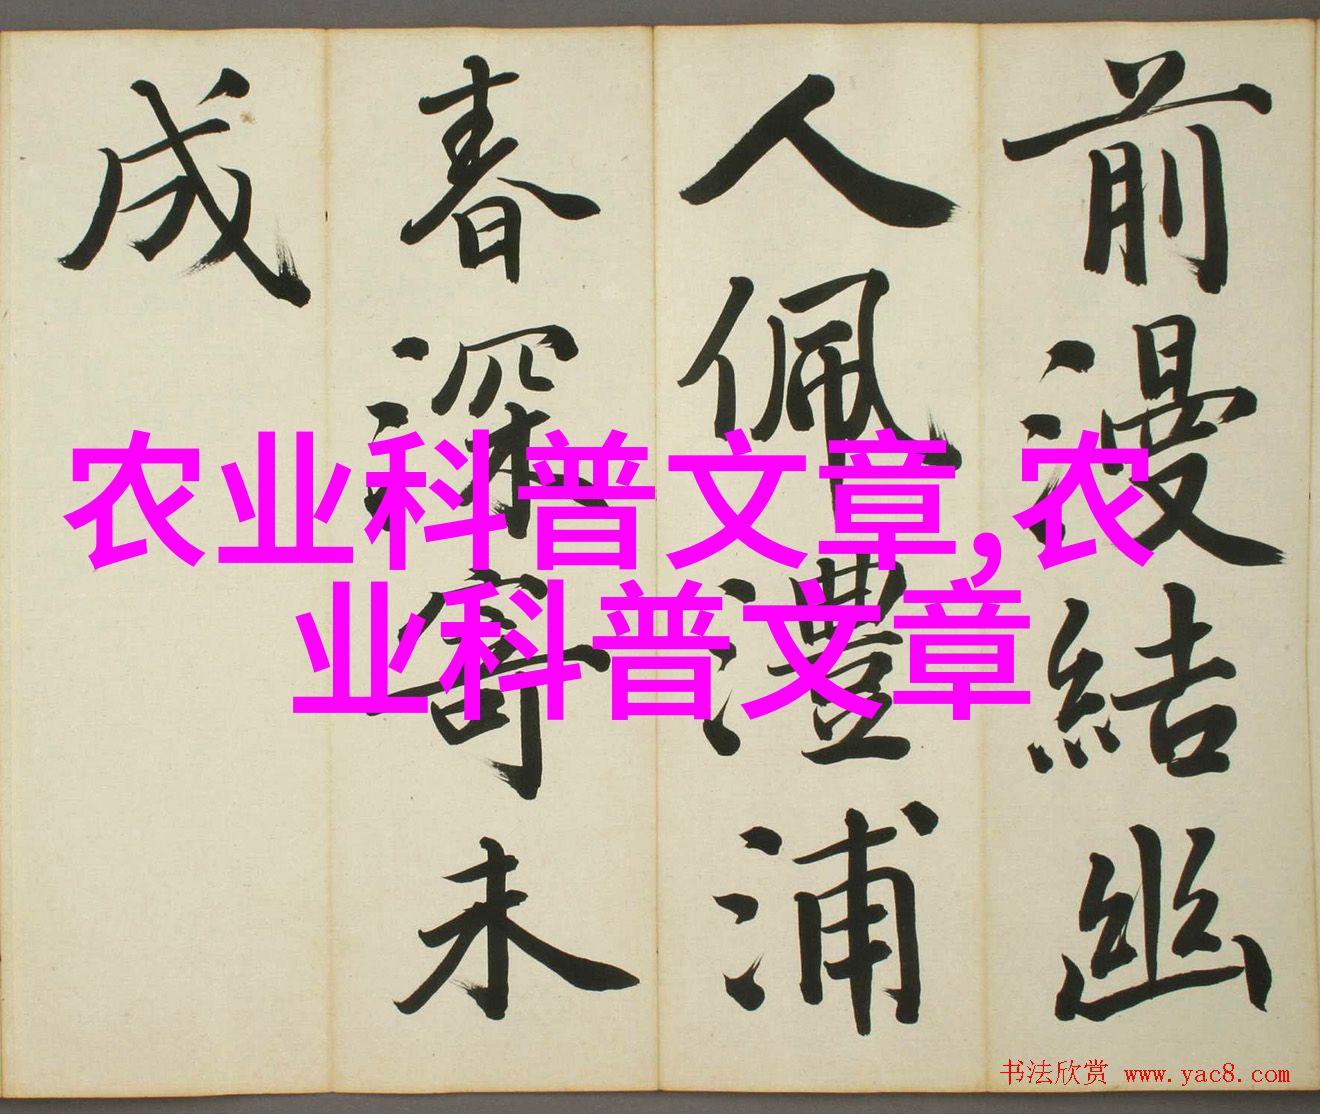 前漫結幽
人佩澧浦
春深寄未
成
农业科普文章,农
业科普文章
书法欣赏 www.yac8.com